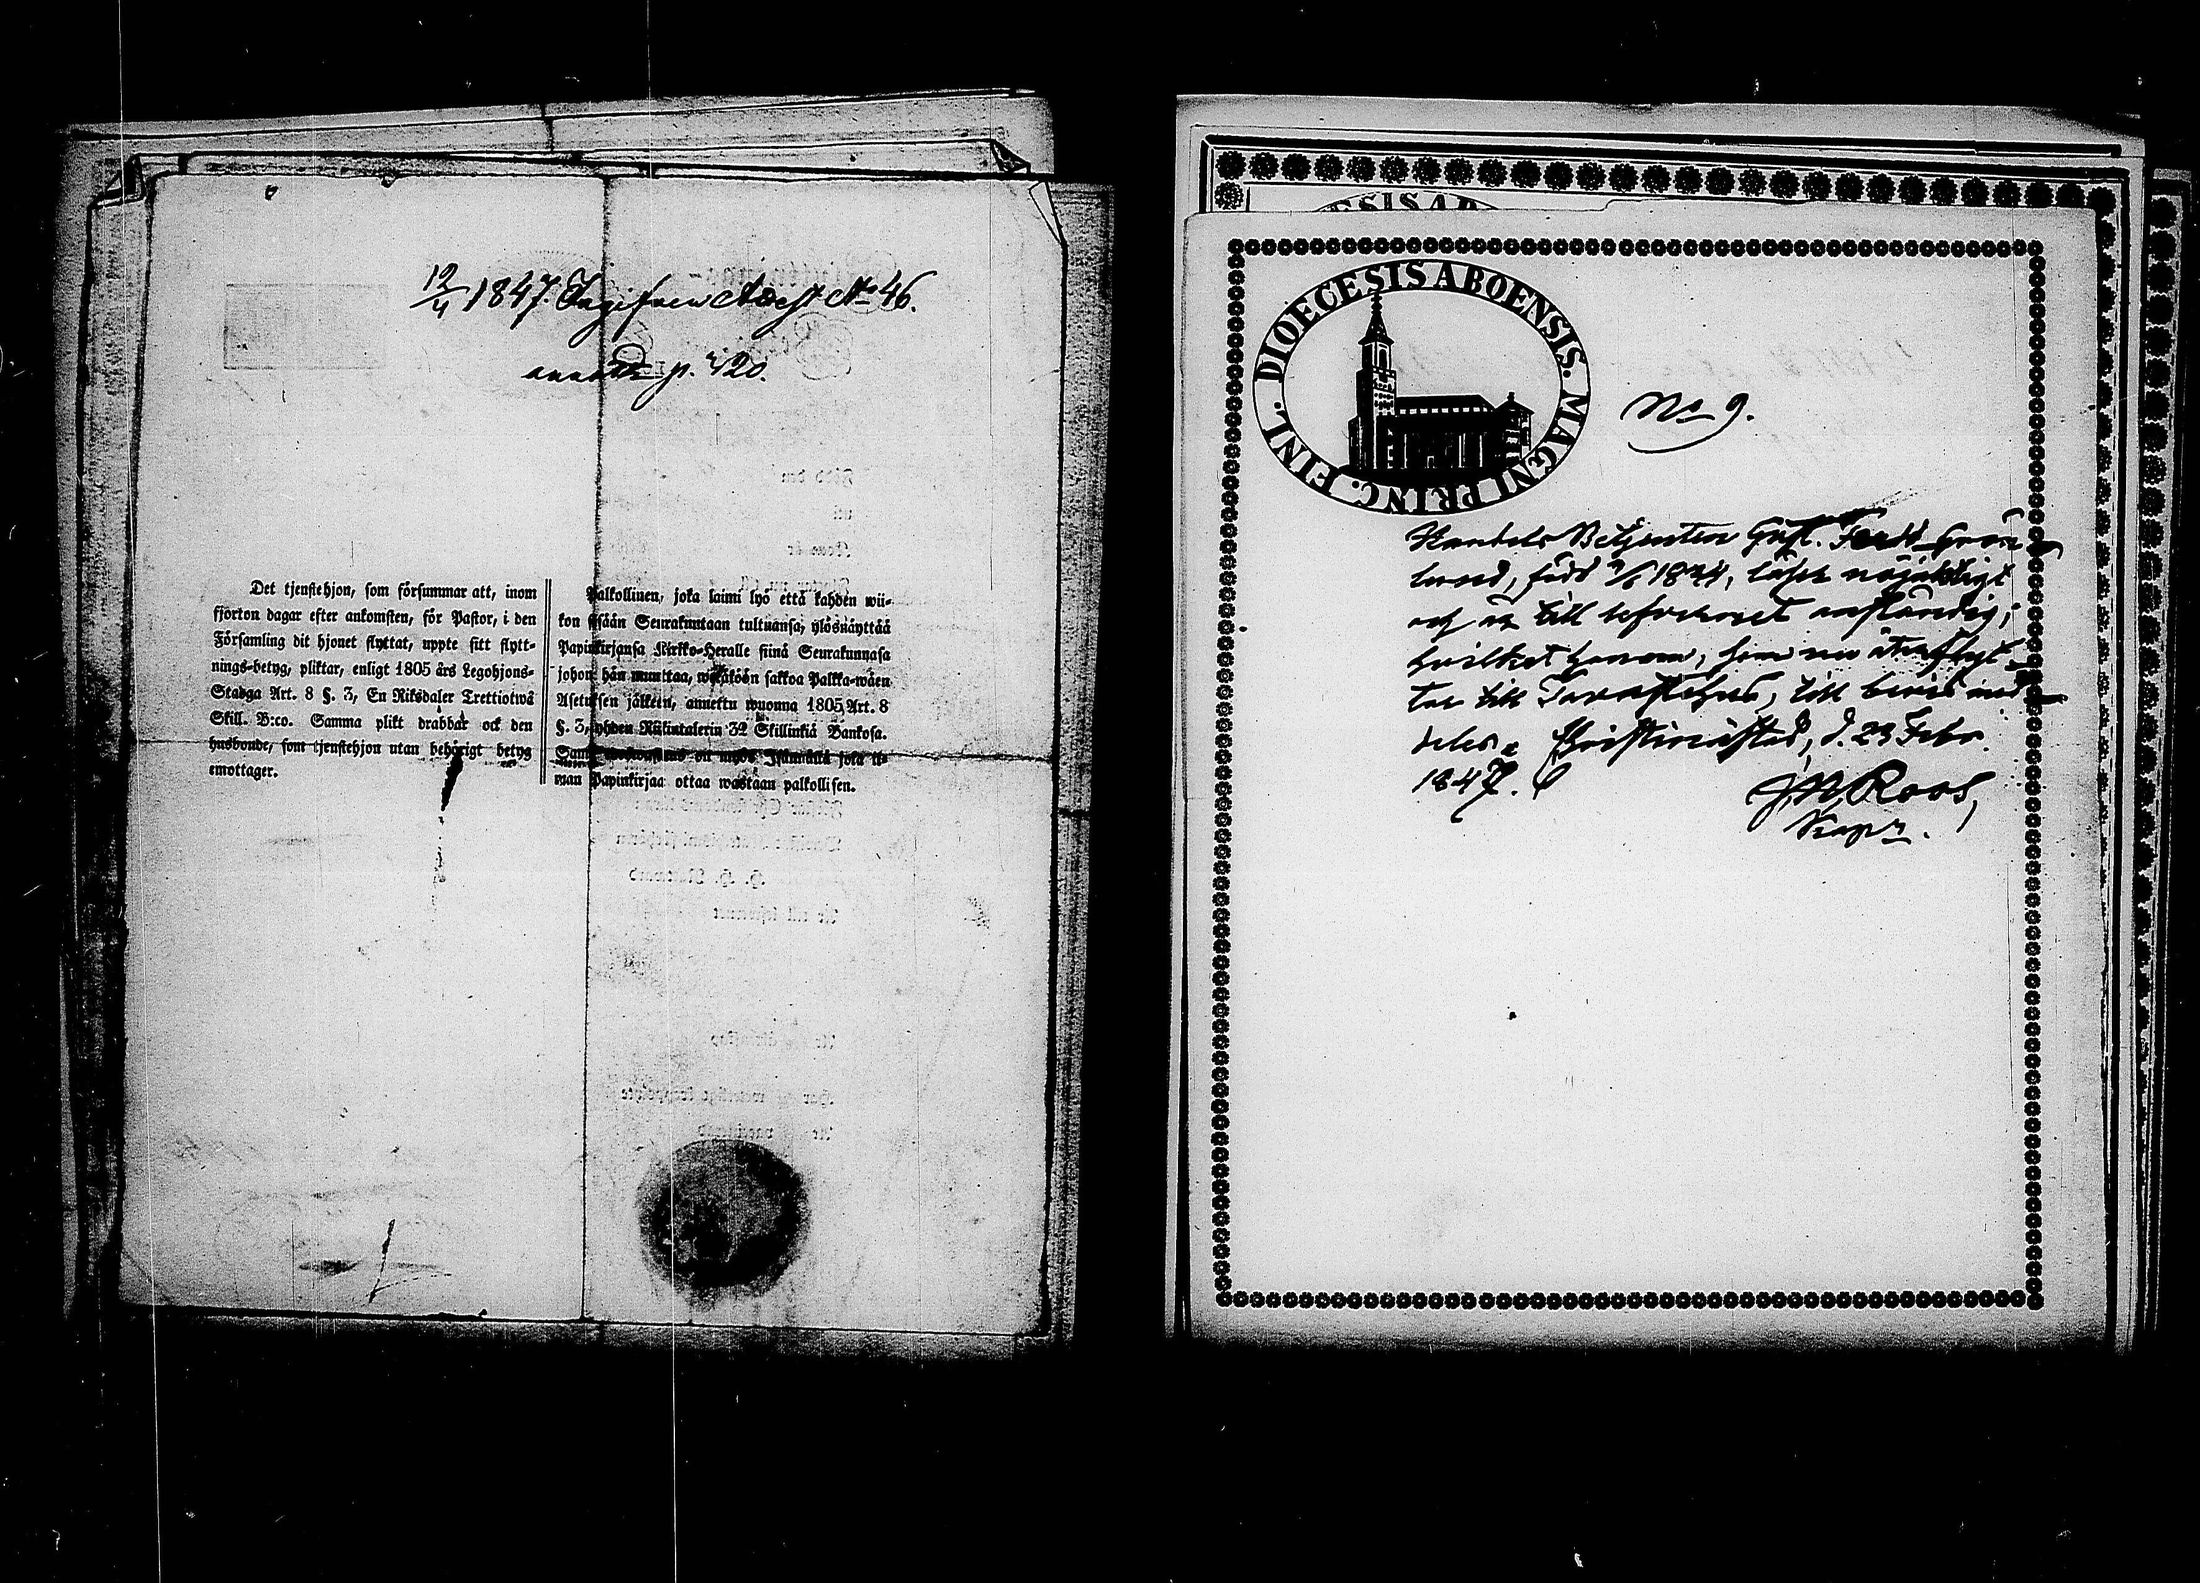 12/4 1847. Ingifven Attest No 46.
p. 420.
Det tjenstehjon, som försummar att, inom
fjorton dagar efter ankomsten, för Pastor, i den
Församling dit hjonet flyttat, uppte sitt flytt-
nings-betyg, pliktar, enligt 1805 års Legohjons-
Stadga Art. 8 §. 3, En Riksdaler Trettiotwå
Skill. B:co. Samma plikt drabbar ock den
husbonde, som tjenstehjon utan behörigt betyg
emottager.
Palkollinen, joka laimi lyö että kahden wii-
kon sisään Seurakuntaan tultuansa, ylösnäyttää
Papinkirjansa Kirkko-Heralle siinä Seurakunnasa
johon hän muuttaa, wetäköön sakkoa Palkka-wäen
Asetuksen jälkeen, annettu wuonna 1805, Art. 8
§. 3, yhden Riikintalerin 32 Skillinkiä Bankosa.
Sama on myös Isännällä joka il-
man Papinkirjaa ottaa wastaan palkollisen.
DIOECESIS ABOENSIS. MAGNI PRINC. FINL.
No 9.
Handels Betjenten Gust. Ferd. Grön
lund, född 1824, läser nöjaktigt
och är till lefvernet anständig;
hvilket honom, som nu återflyt
tar till Tavastehus, till bevis med
delas. Christinæstad, d. 23 Febr.
1847.
J. W. Roos,